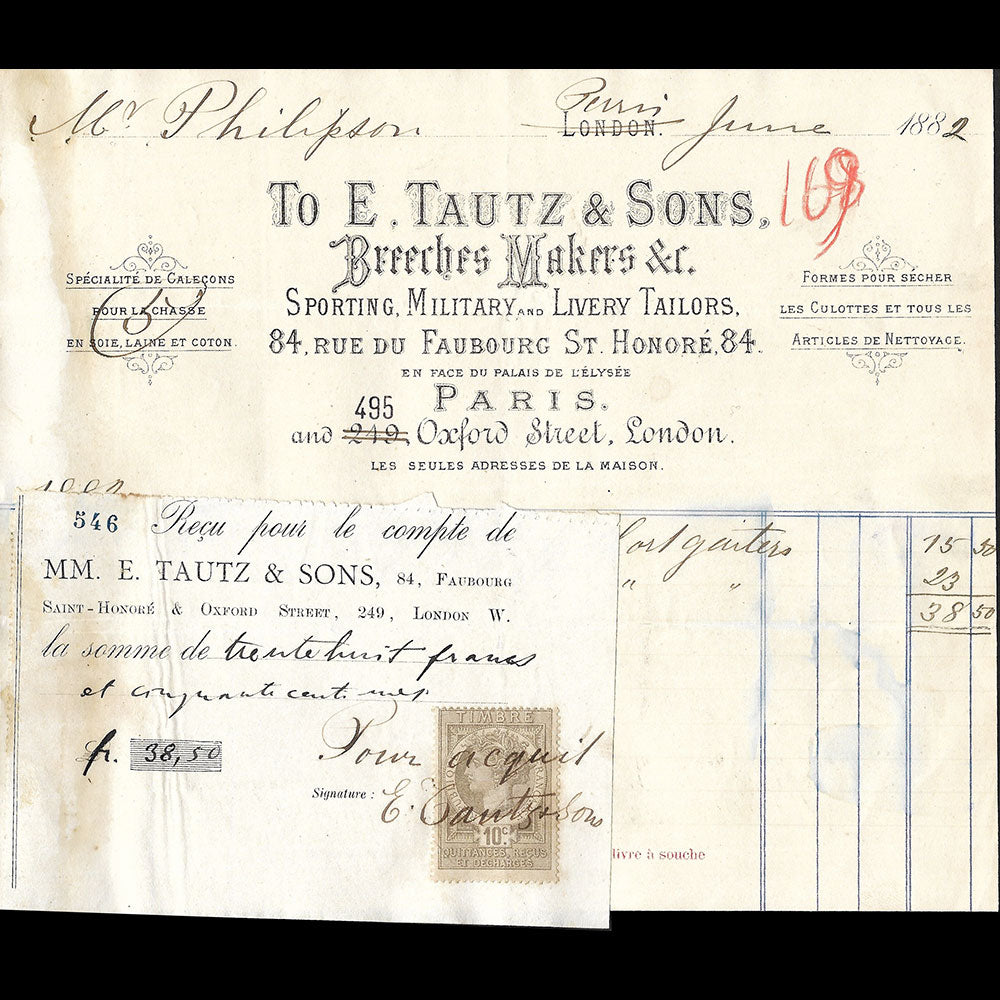 Mr Philipson
Paris
LONDON. June 1882
169
TO E. TAUTZ & SONS,
Breeches Makers &c.
SPORTING, MILITARY AND LIVERY TAILORS,
84, RUE DU FAUBOURG ST. HONORÉ, 84.
EN FACE DU PALAIS DE L'ÉLYSÉE
PARIS.
495
and 249, Oxford Street, London.
LES SEULES ADRESSES DE LA MAISON.
SPÉCIALITÉ DE CALEÇONS
POUR LA CHASSE
EN SOIE, LAINE ET COTON.
FORMES POUR SÉCHER
LES CULOTTES ET TOUS LES
ARTICLES DE NETTOYAGE.
gaiters 15 50
" " 23
38 50
546 Reçu pour le compte de
MM. E. TAUTZ & SONS, 84, FAUBOURG
SAINT-HONORÉ & OXFORD STREET, 249, LONDON W.
la somme de trente huit francs
et cinquante centimes
fr. 38,50
Pour acquit
Signature : E. Tautz & Sons
TIMBRE
10c.
QUITTANCES, REÇUS
ET DÉCHARGES
livre à souche